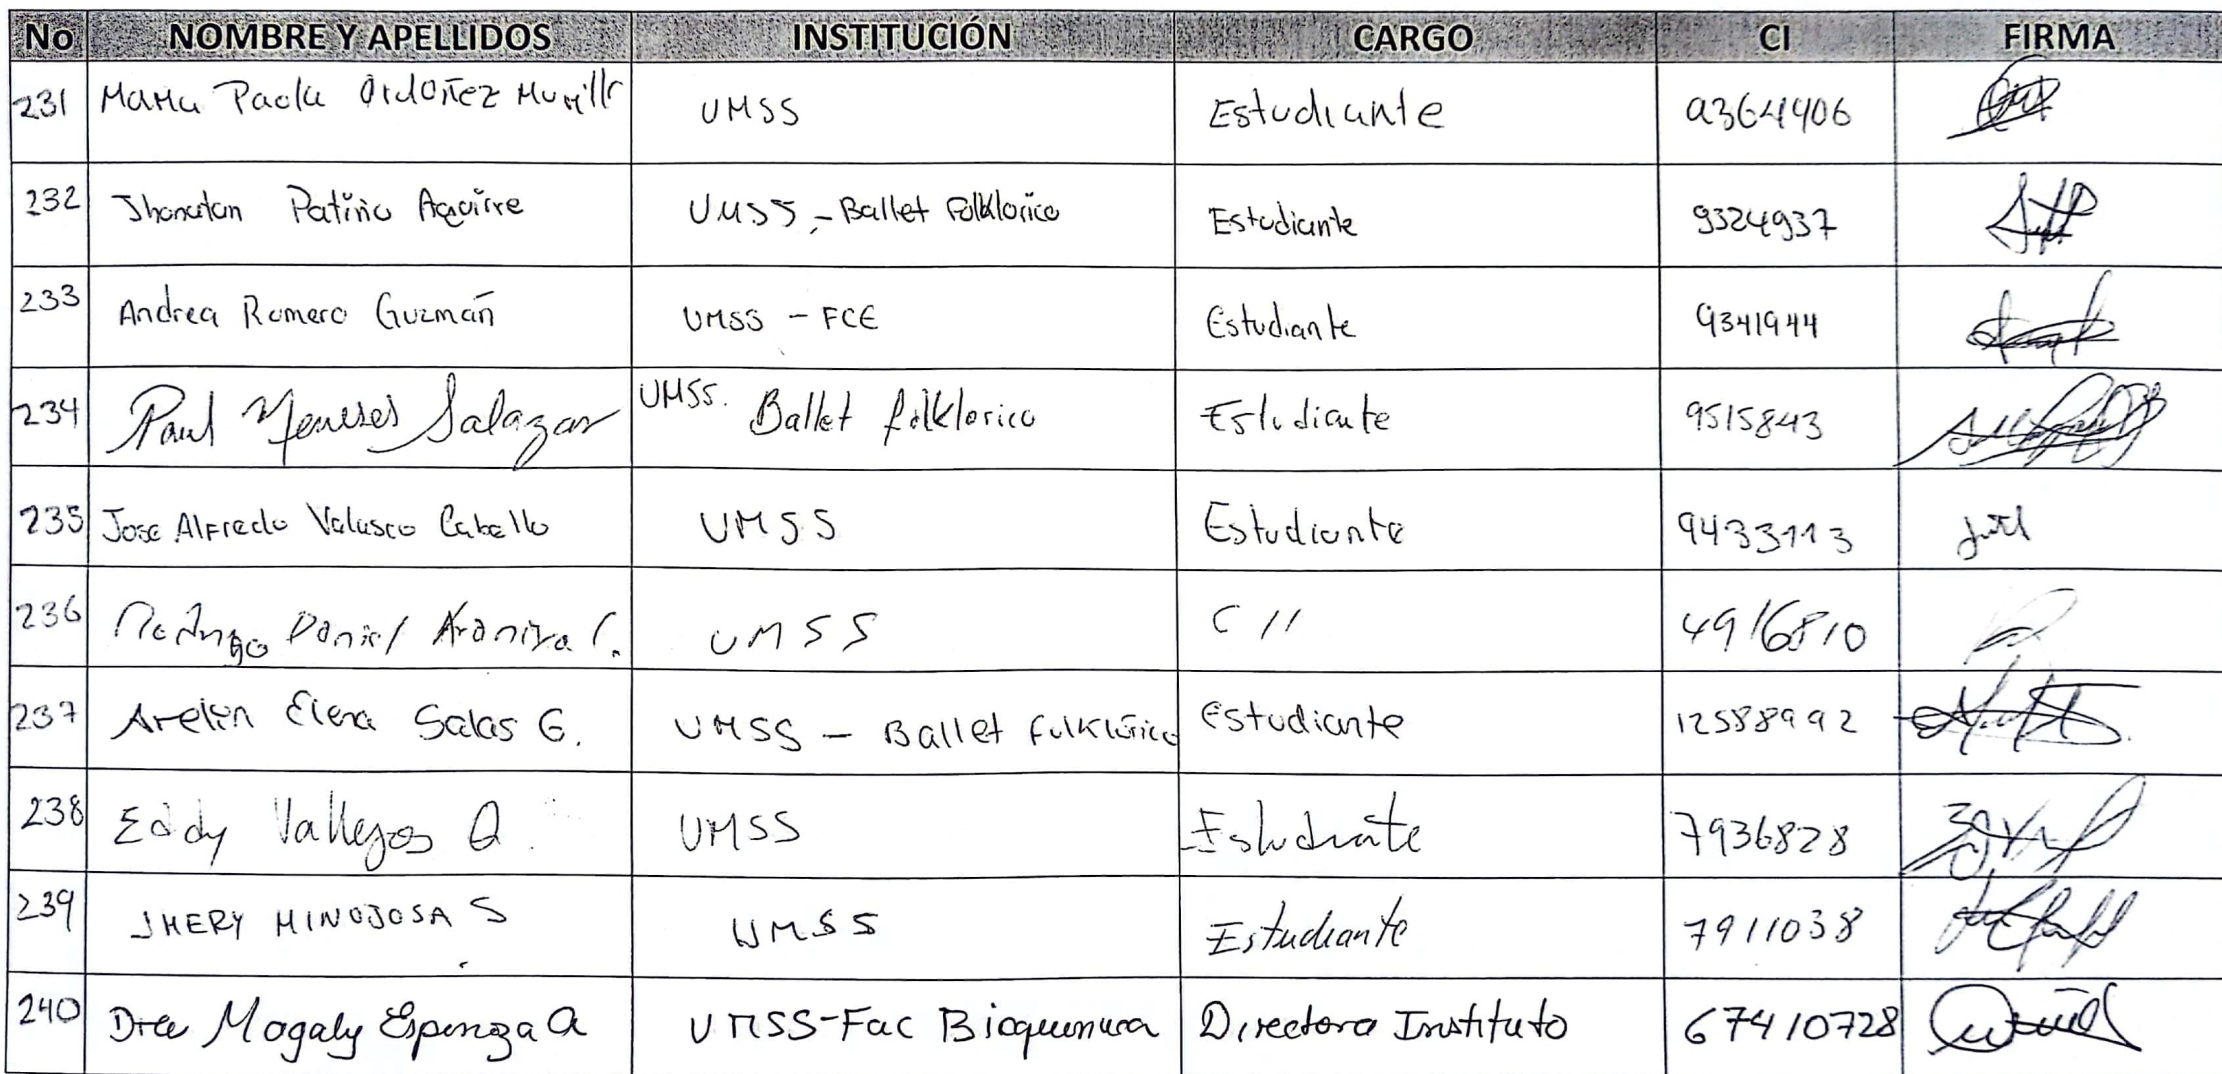 No NOMBRE Y APELLIDOS INSTITUCIÓN CARGO CI FIRMA
231 Maria Paola Ordoñez Murillo UMSS Estudiante 9364406
232 Jhonatan Patiño Aguirre UMSS - Ballet Folklorico Estudiante 9324937
233 Andrea Romero Guzmán UMSS - FCE Estudiante 9341944
234 Paul Meneses Salazar UMSS. Ballet folklorico Estudiante 9515843
235 Jose Alfredo Velasco Cabello UMSS Estudiante 9433113
236 Rodrigo Daniel Araniva C. UMSS C // 4916810
237 Arelin Elena Salas G. UMSS - Ballet Folklórico Estudiante 12588992
238 Eddy Vallejos Q. UMSS Estudiante 7936828
239 JHERY HINOJOSA S UMSS Estudiante 7911038
240 Dra Magaly Espinoza A UMSS-Fac Bioquimica Directora Instituto 67410728